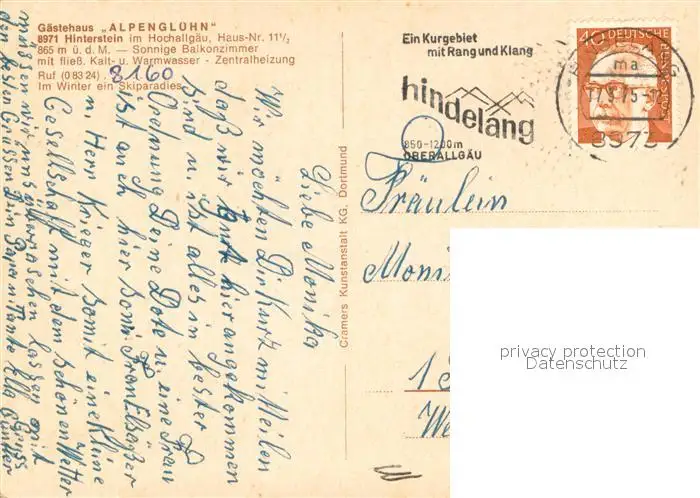 Gästehaus „ALPENGLÜHN"
8971 Hinterstein im Hochallgäu, Haus-Nr. 11½
865 m ü. d. M. — Sonnige Balkonzimmer
mit fließ. Kalt- u. Warmwasser - Zentralheizung
Ruf (0 83 24) 8160
Im Winter ein Skiparadies
Liebe Monika
Wir möchten Dir kurz mitteilen
daß wir gut hier angekommen
sind u. ist alles in bester
Ordnung Deine Dote u. eine Frau
ist auch hier sow. Frau Elsäßer
u. Herr Krieger somit eine kleine
Gesellschaft mit dem schönen Wetter
müssen wir uns überraschen lassen
den besten Grüssen Dein u. Tante Ella
Cramers Kunstanstalt KG. Dortmund
Ein Kurgebiet
mit Rang und Klang
hindelang
850-1200m
OBERALLGÄU
ma
DEUTSCHE
BUNDESPOST
40
Fräulein
Moni
1
We
privacy protection
Datenschutz